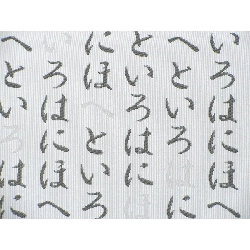 いろはにほへ
へといろはに
といろはにほ
にほへといろ
いろはにほへ
へといろはに